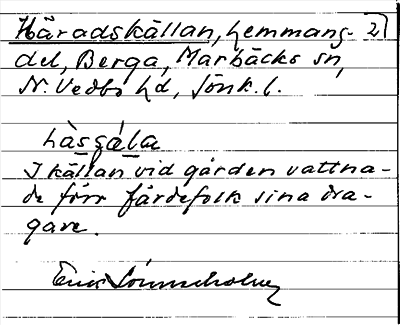 Häradskällan, hemmans- 2)
del, Berga, Marbäcks sn,
N. Vedbo hd, Jönk. l.
I källan vid gården vattna-
de förr färdefolk sina dra-
gare.
Erik